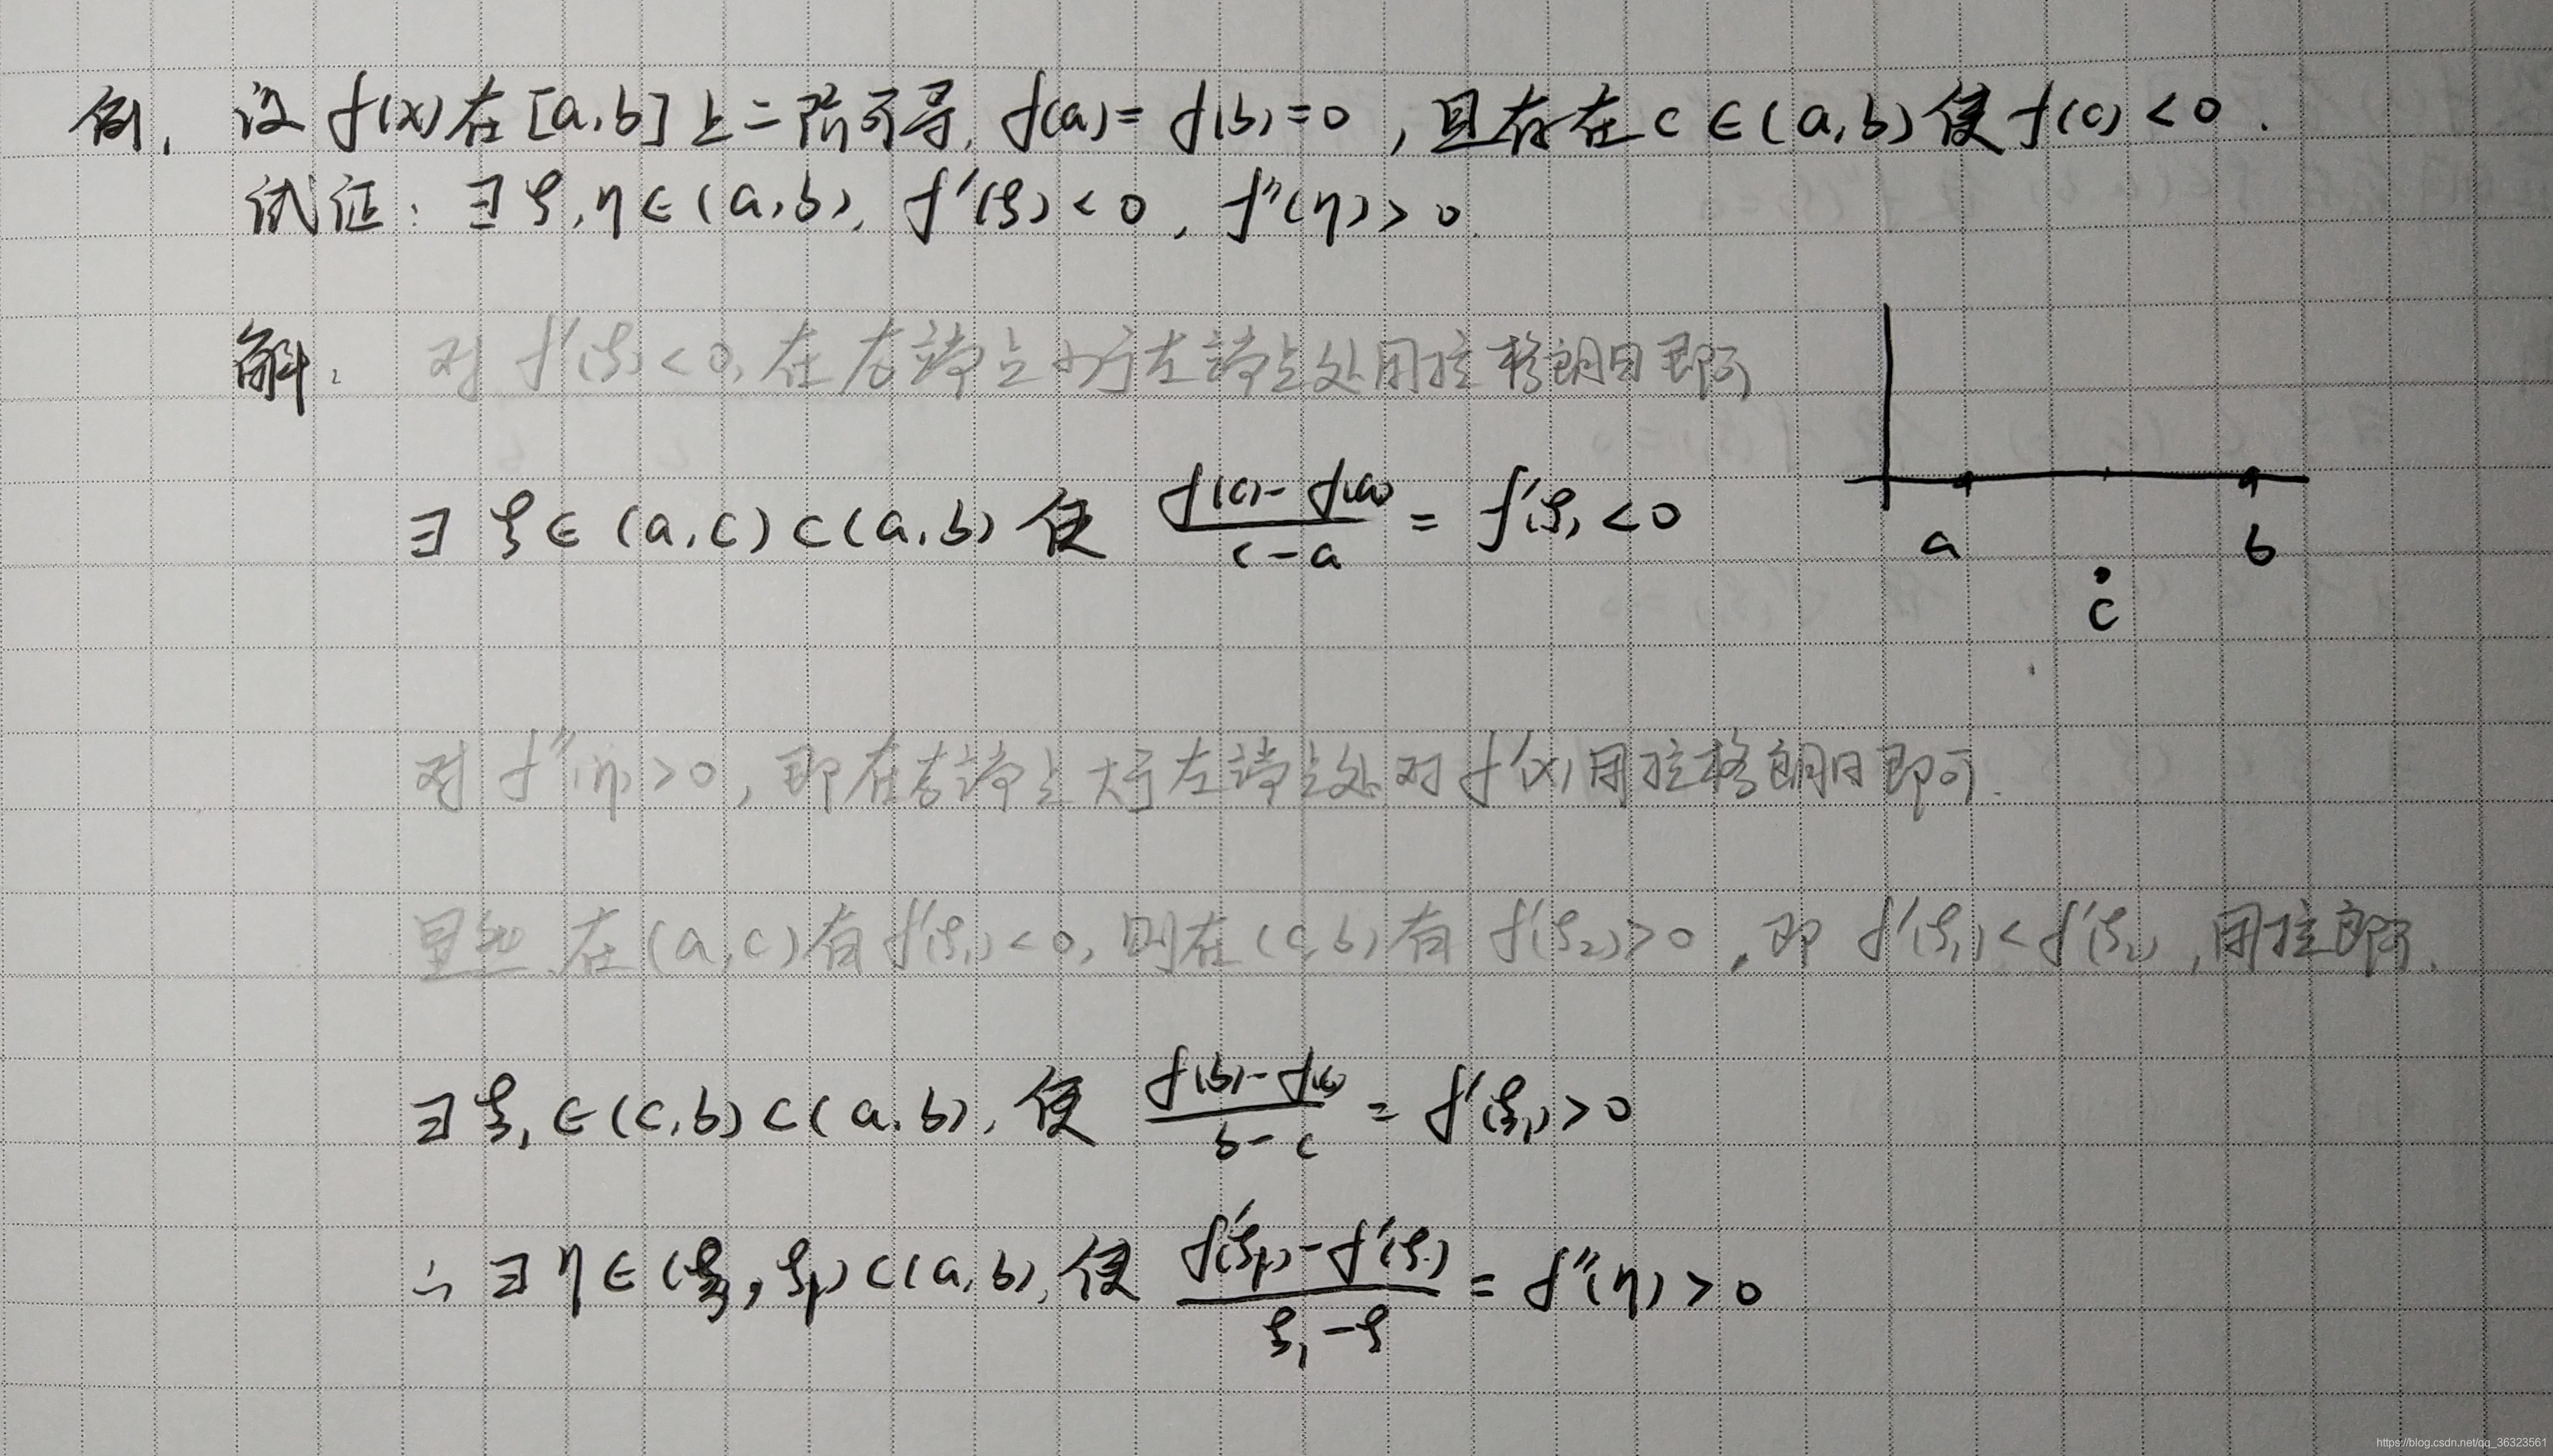 例. 设 f(x) 在 [a,b] 上二阶可导, f(a) = f(b) = 0, 且存在 c ∈ (a,b) 使 f(c) < 0.
试证: ∃ ξ, η ∈ (a,b), f'(ξ) < 0, f''(η) > 0.
解: 对 f'(ξ) < 0, 在右端点小于左端点处用拉格朗日即可
∃ ξ ∈ (a,c) ⊂ (a,b) 使 \frac{f(c) - f(a)}{c - a} = f'(ξ) < 0
a
b
c
对 f''(η) > 0, 即在右端点大于左端点处对 f'(x) 用拉格朗日即可.
在 (a,c) 有 f'(ξ₁) < 0, 则在 (c,b) 有 f'(ξ₂) > 0, 即 f'(ξ₁) < f'(ξ₂), 用拉即可.
∃ ξ₁ ∈ (c,b) ⊂ (a,b), 使 \frac{f(b) - f(c)}{b - c} = f'(ξ₁) > 0
∴ ∃ η ∈ (ξ, ξ₁) ⊂ (a,b), 使 \frac{f'(ξ₁) - f'(ξ)}{ξ₁ - ξ} = f''(η) > 0
https://blog.csdn.net/qq_36323561